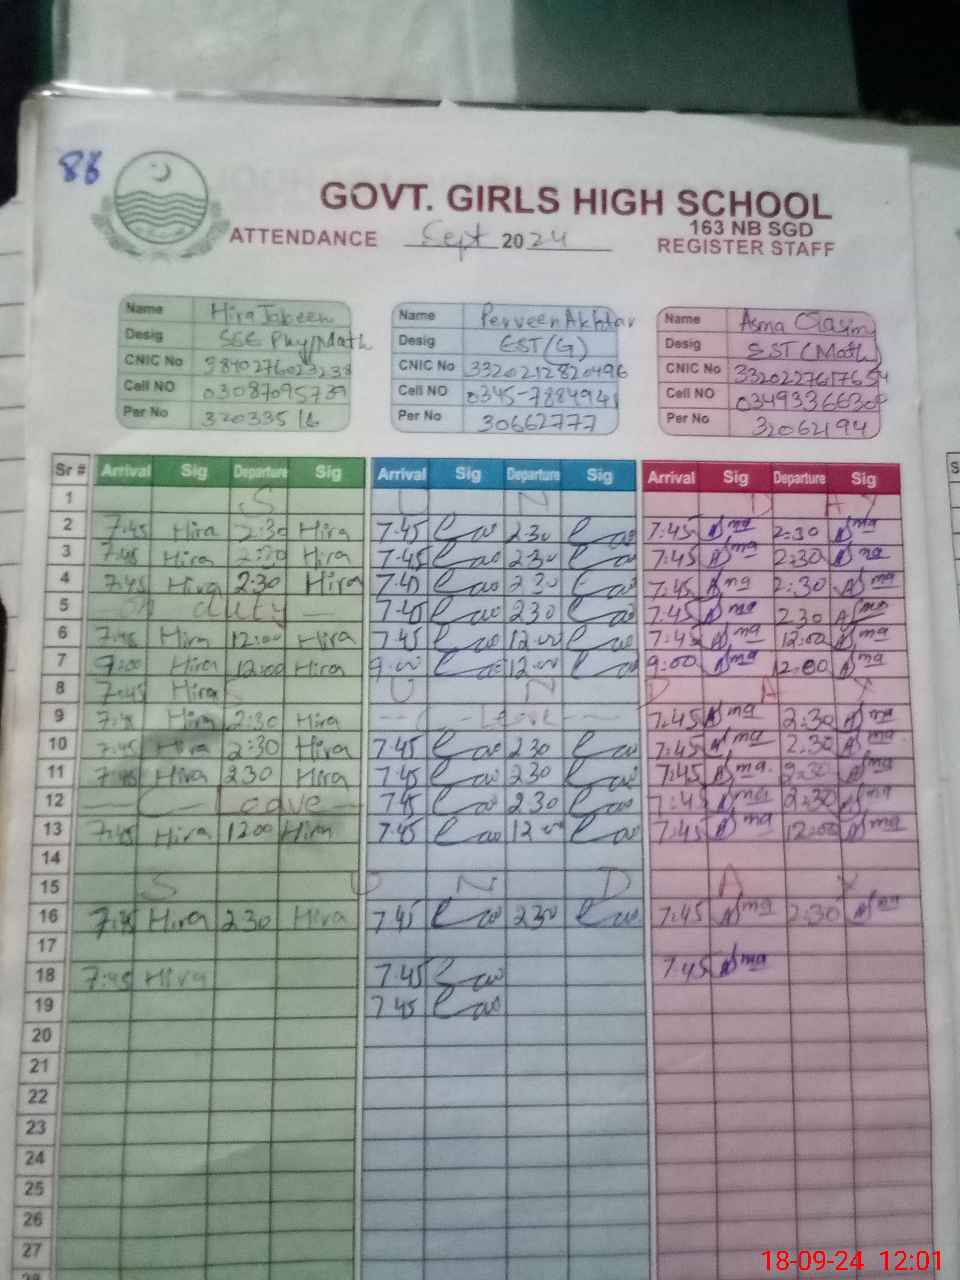 88
GOVT. GIRLS HIGH SCHOOL
163 NB SGD
ATTENDANCE Sept 2024 REGISTER STAFF
Name Hira Jabeen Name Perveen Akhtar Name Asma Qasim
Desig SSE Phy/Math Desig EST (G) Desig EST (Math)
CNIC No CNIC No 3320212820496 CNIC No 3320227617654
Cell NO 03087095739 Cell NO 0345-7884941 Cell NO 03493366308
Per No 32033516 Per No 30662777 Per No 32062194
Sr # Arrival Sig Departure Sig Arrival Sig Departure Sig Arrival Sig Departure Sig
1 S U N D A Y
2 7:45 Hira 2:30 Hira 7:45 2:30 7:45 Asma 2:30 Asma
3 7:45 Hira 2:30 Hira 7:45 2:30 7:45 Asma 2:30 Asma
4 7:45 Hira 2:30 Hira 7:40 2:30 7:45 Asma 2:30 Asma
5 on duty 7:40 230 7:45 Asma 2:30 Asma
6 7:45 Hira 12:00 Hira 7:45 12:00 7:45 Asma 12:00 Asma
7 9:00 Hira 12:00 Hira 9:00 12:00 9:00 Asma 12:00 Asma
8 7:45 Hira S U N D A Y
9 7:45 Hira 2:30 Hira Leave 7:45 Asma 2:30 Asma
10 7:45 Hira 2:30 Hira 7:45 230 7:45 Asma 2:30 Asma
11 7:45 Hira 230 Hira 7:45 230 7:45 Asma 2:30 Asma
12 Leave 7:45 230 7:45 Asma 2:30 Asma
13 7:45 Hira 1200 Hira 7:45 12:00 7:45 Asma 12:00 Asma
14
15 S U N D A Y
16 7:45 Hira 230 Hira 7:45 230 7:45 Asma 2:30 Asma
17
18 7:45 Hira 7:45 7:45 Asma
19 7:45
20
21
22
23
24
25
26
27
18-09-24 12:01